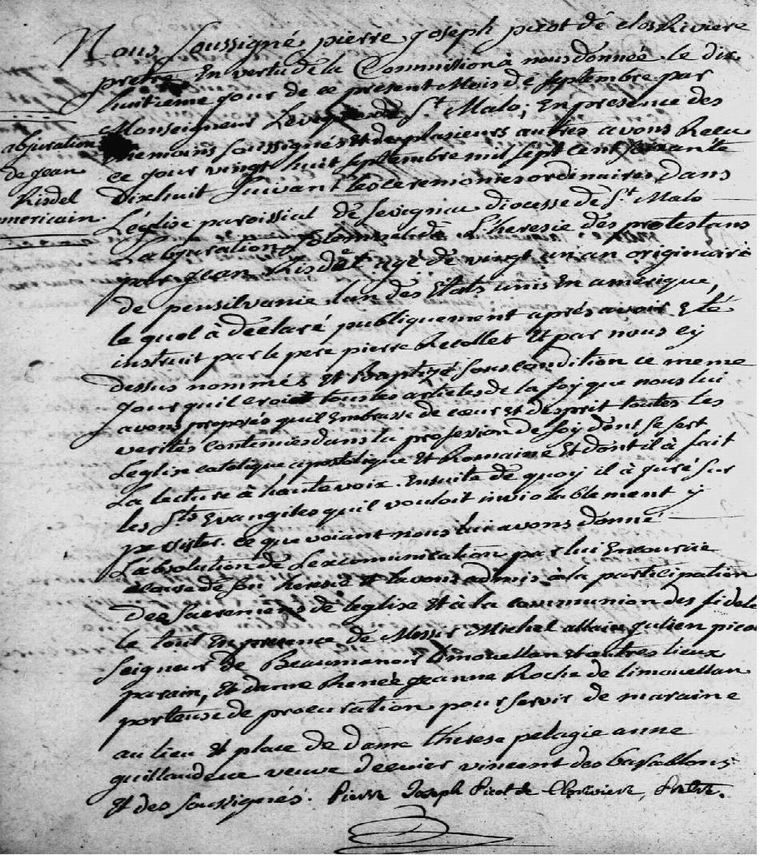 Nous Soussigné pierre Joseph picot de closRiviere
pretre En vertu de la Commission à nous donnée le dix
huitieme jour de ce present Mois de Septembre par
Monseigneur L'eveque de St Malo; En presence des
themoins soussignés et de plusieurs autres avons Recu
ce jour vingt huit Septembre mil sept cent soixante
Dixhuit suivant les ceremonies ordinaires dans
L'église paroissial de Sevignac diocese de St Malo
L'abjuration solemnele de L'heresie des protestans
par Jean Risdel agé de vingt un an originaire
de pensilvanie l'un des Etats unis En amerique,
le quel à déclaré publiquement aprés avoir Eté
instruit par le pere pierre Recollet Et par nous cy
dessus nommés et Baptizé sous condition ce meme
jour qu'il croioit tous les articles de la foy que nous lui
avons proposés qu'il Embrasse de cœur et d'esprit toutes les
verités contenues dans la profession de foy dont se sert
L'eglise catolique apostolique et Romaine Et dont il à fait
La lecture à haute voix. Ensuite de quoy il à juré sur
les Sts Evangiles qu'il vouloit inviolablement y
persister. ce que voiant nous lui avons donné
L'absolution de L'excomunication par lui Encourue
a cause de son heresie et l'avons admis à la participation
Des sacremens de l'eglise et à la communion des fidele
le tout En presence de Messir Michel allain Julien picot
Seigneur de Beaumenoir Limouellan et autres lieux
parain, et damme Renée Jeanne Roche de Limouellan
porteuse de procuration pour servir de maraine
au lieu et place de dame therese pelagie anne
guillaudeue veuve d'ecuier vincent des basablons
et des Soussignés. Pierre Joseph Picot de Clorivière, Prêtre.
abjuration
de Jean
Risdel
americain